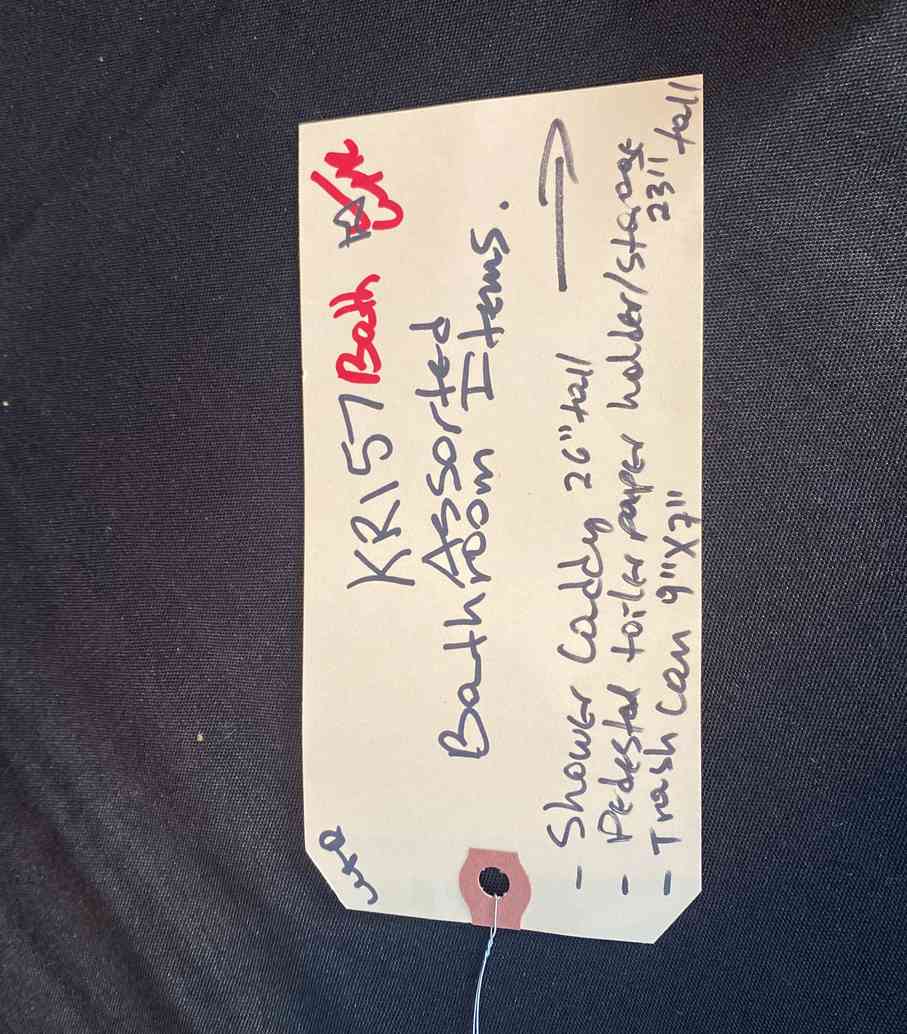 KR157 Bath
Assorted
Bathroom Items.
- Shower Caddy 26" tall
- Pedestal toilet paper holder/storage
23" tall
- Trash Can 9"X7"